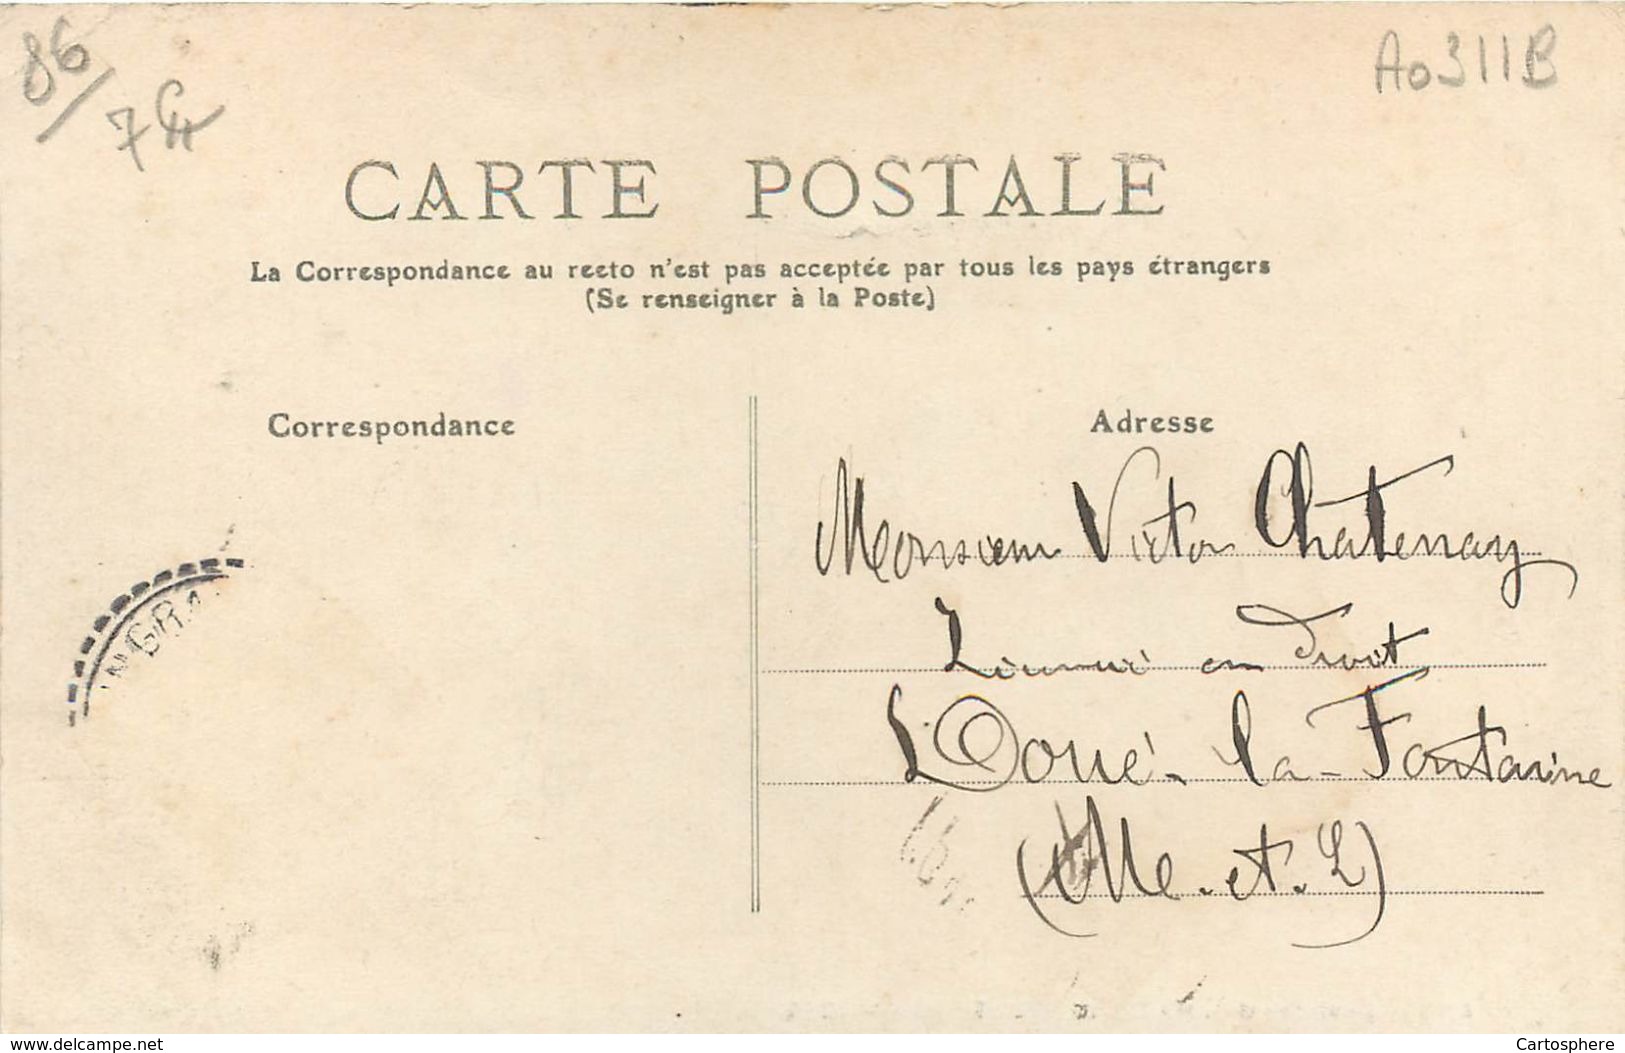 86/
7
A0311B
CARTE POSTALE
La Correspondance au recto n'est pas acceptée par tous les pays étrangers
(Se renseigner à la Poste)
Correspondance
Adresse
Monsieur Victor Chatenay
Licencié en Droit
Doué-la-Fontaine
(M.-et-L)
INGRA
www.delcampe.net
Cartosphere